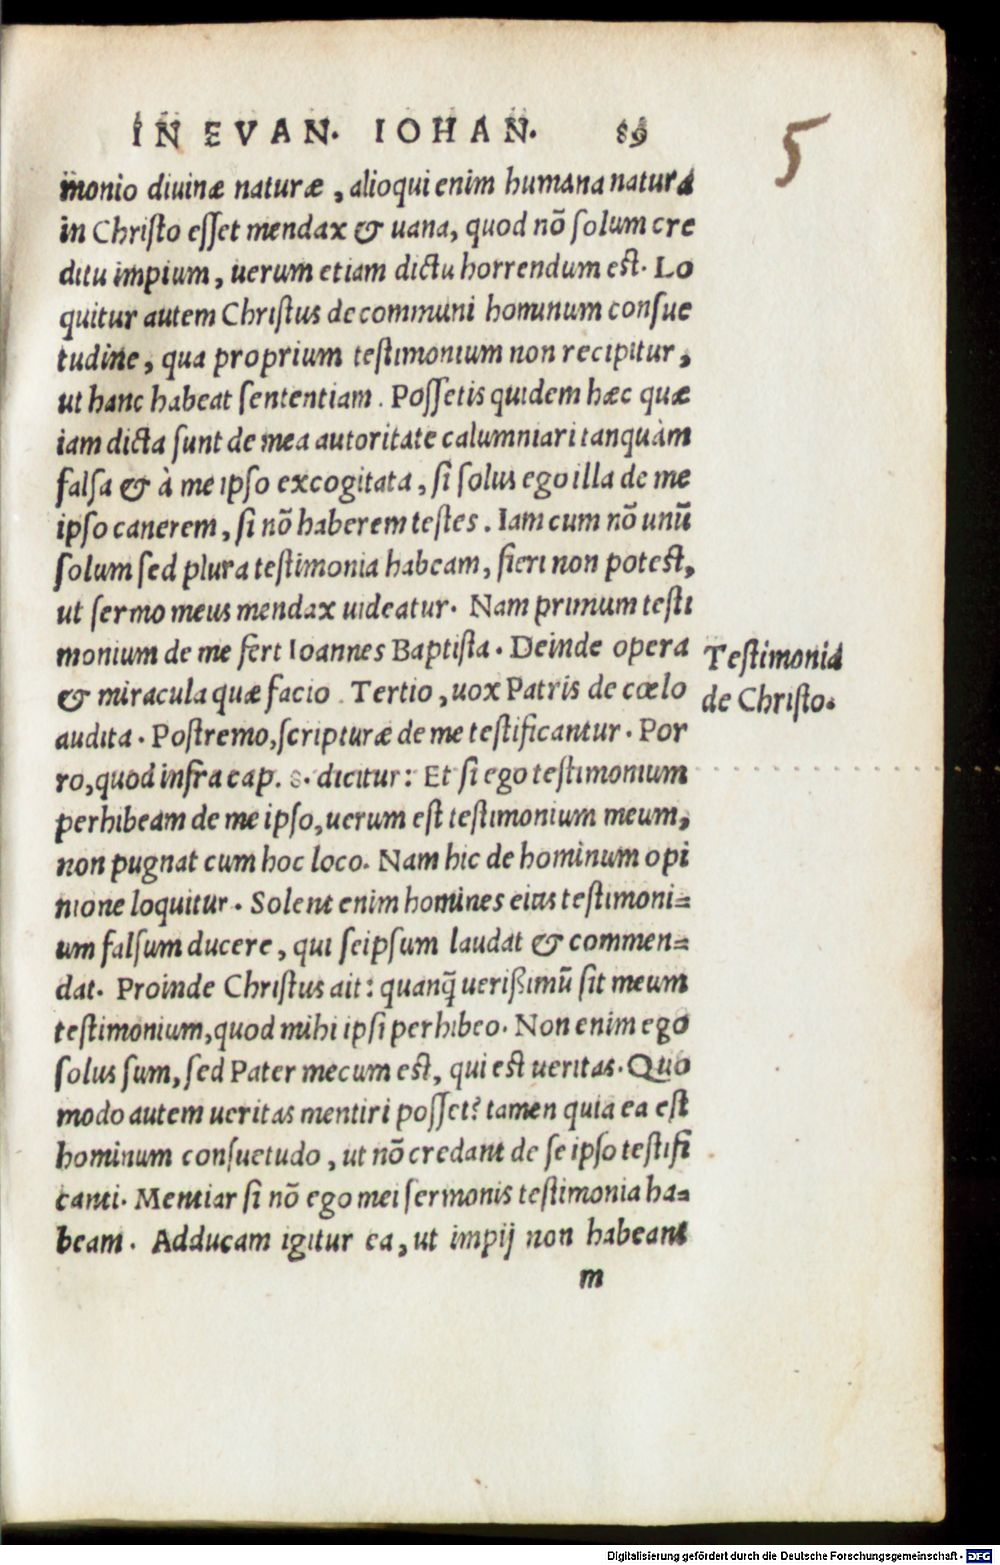 IN EVAN. IOHAN. 89
5
monio diuinæ naturæ, alioqui enim humana natura
in Christo esset mendax & uana, quod nõ solum cre
ditu impium, uerum etiam dictu horrendum est. Lo
quitur autem Christus de communi hominum consue
tudine, qua proprium testimonium non recipitur,
ut hanc habeat sententiam. Possetis quidem hæc quæ
iam dicta sunt de mea autoritate calumniari tanquàm
falsa & à me ipso excogitata, si solus ego illa de me
ipso canerem, si nõ haberem testes. Iam cum nõ unũ
solum sed plura testimonia habeam, fieri non potest,
ut sermo meus mendax uideatur. Nam primum testi
monium de me fert Ioannes Baptista. Deinde opera
& miracula quæ facio. Tertio, uox Patris de cœlo
audita. Postremo, scripturæ de me testificantur. Por
ro, quod infra cap. 8. dicitur: Et si ego testimonium
perhibeam de me ipso, uerum est testimonium meum,
non pugnat cum hoc loco. Nam hic de hominum opi
nione loquitur. Solent enim homines eius testimoni=
um falsum ducere, qui seipsum laudat & commen=
dat. Proinde Christus ait: quanq̃ uerißimũ sit meum
testimonium, quod mihi ipsi perhibeo. Non enim ego
solus sum, sed Pater mecum est, qui est ueritas. Quo
modo autem ueritas mentiri posset? tamen quia ea est
hominum consuetudo, ut nõ credant de se ipso testifi
canti. Mentiar si nõ ego mei sermonis testimonia ha=
beam. Adducam igitur ea, ut impij non habeant
m
Testimonia
de Christo.
Digitalisierung gefördert durch die Deutsche Forschungsgemeinschaft - DFG